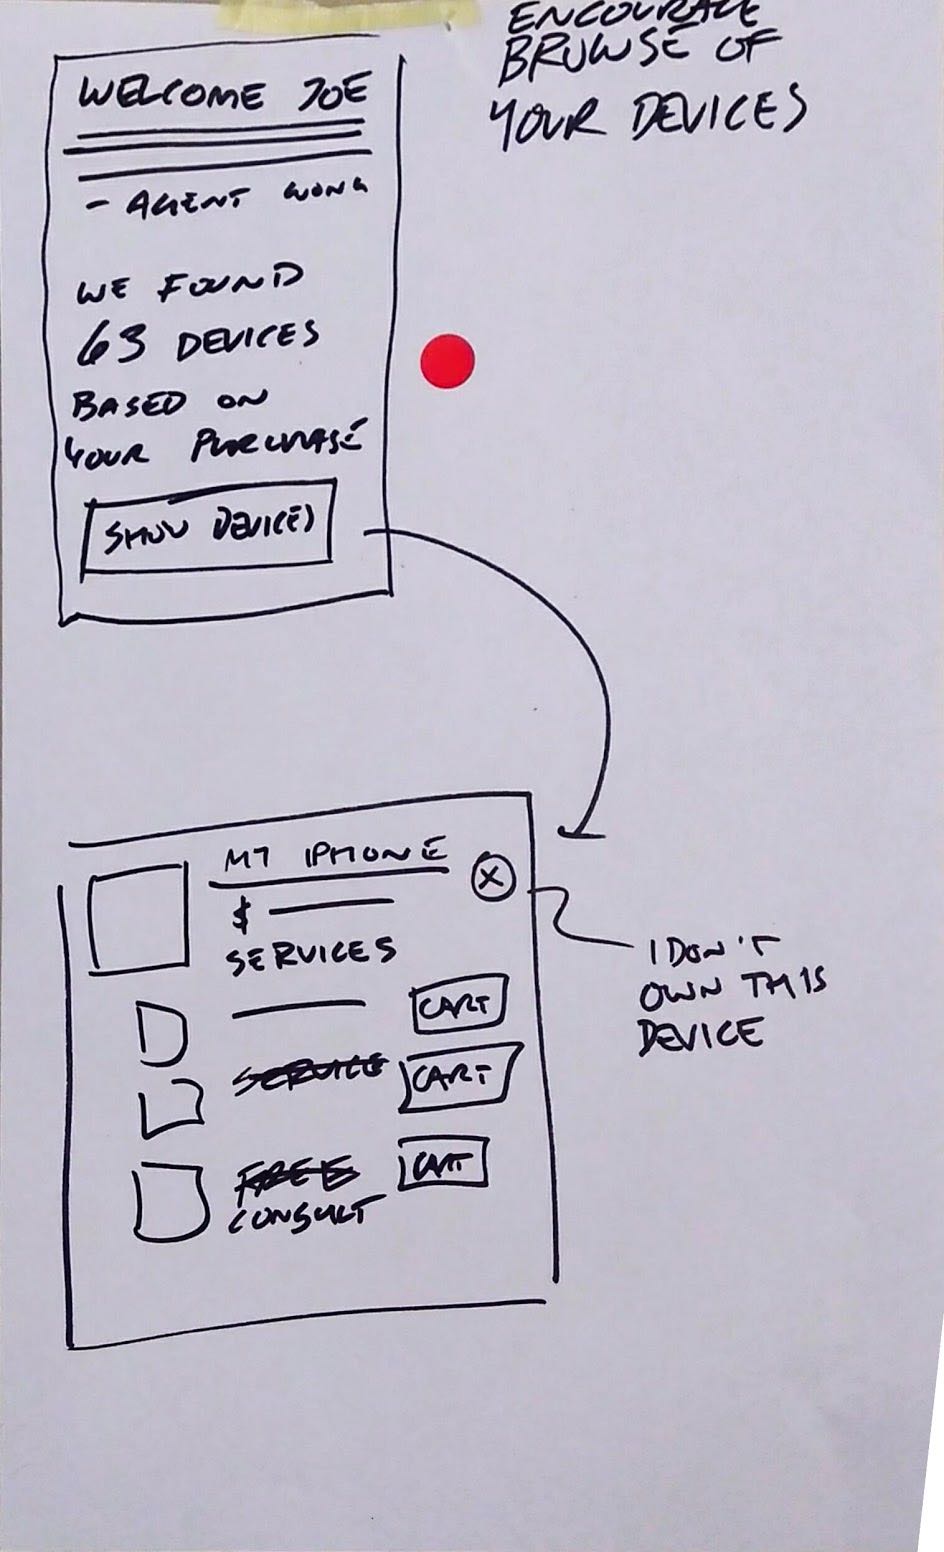 ENCOURAGE
BROWSE OF
YOUR DEVICES
WELCOME JOE
- AGENT WONG
WE FOUND
63 DEVICES
BASED ON
YOUR PURCHASE
SHOW DEVICES
MY IPHONE
X
$
SERVICES
CART
SERVICE CART
FREE CART
CONSULT
I DON'T
OWN THIS
DEVICE